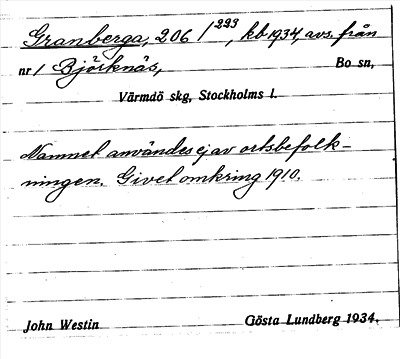 Granberga, 206/293, kb 1934, avs. från
nr 1 Björknäs, Bo sn,
Värmdö skg, Stockholms l.
Namnet användes ej av ortsbefolk-
ningen. Givet omkring 1910.
John Westin Gösta Lundberg 1934.